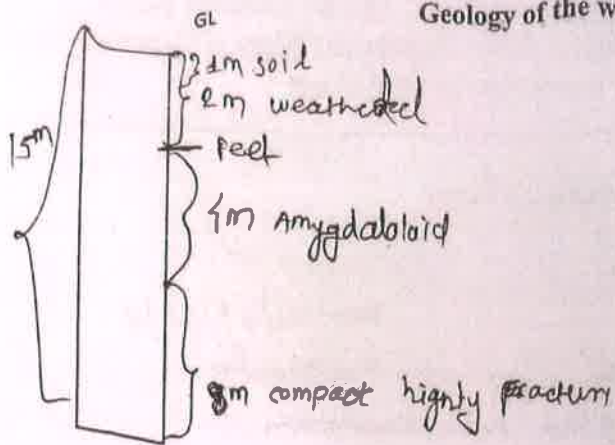 Geology of the w
GL
1m soil
2m weatheded
Peet
15m
4m Amygdaloloid
8m compact highty fractum